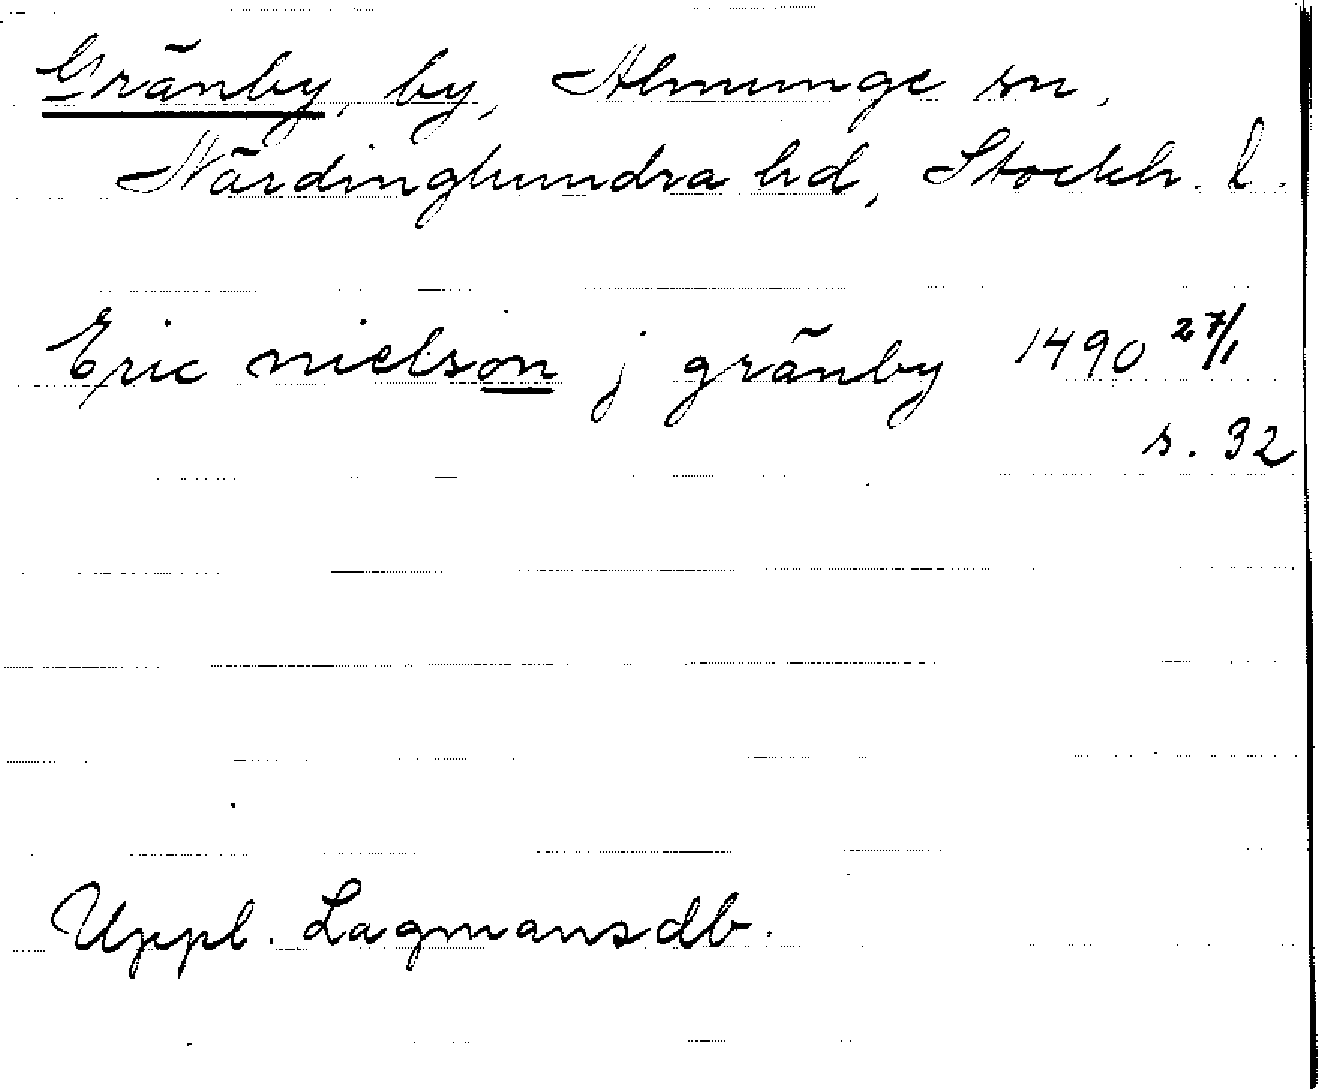 Gränby, by, Almunge sn,
Närdinghundra hd, Stockh. l.
Eric nielson j gränby 1490 27/1
s. 32
Uppl. Lagmansdb.